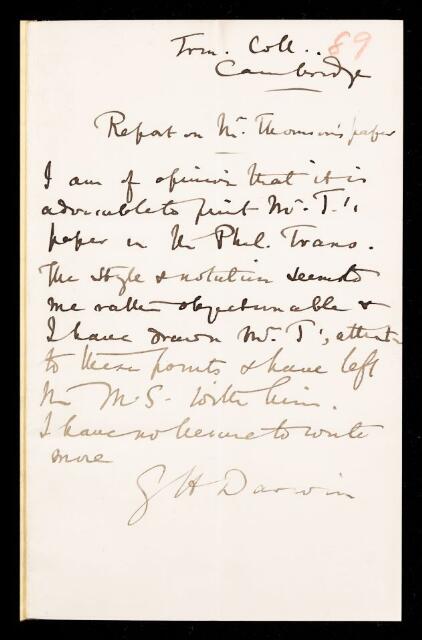 Trin. Coll.. 89
Cambridge
Report on Mr. Thomson's paper
I am of opinion that it is
advisable to print Mr. T.'s
paper in the Phil. Trans.
The style & notation seemed to
me rather objectionable &
I have drawn Mr. T's attention
to these points & have left
the M.S. with him.
I have no leisure to write
more
G H Darwin